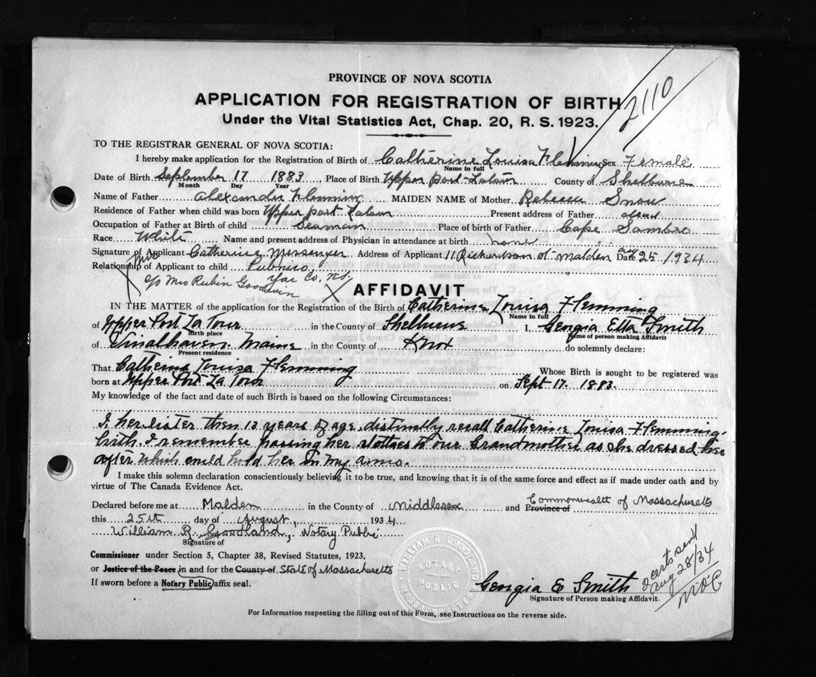 PROVINCE OF NOVA SCOTIA
2110
APPLICATION FOR REGISTRATION OF BIRTH
Under the Vital Statistics Act, Chap. 20, R. S. 1923.
TO THE REGISTRAR GENERAL OF NOVA SCOTIA:
I hereby make application for the Registration of Birth of Catherine Louisa Flemming Sex Female
Name in full
Date of Birth September 17 1883 Place of Birth Upper port-Latour County of Shelburne
Month Day Year
Name of Father Alexander Flemming MAIDEN NAME of Mother Rebecca Snow
Residence of Father when child was born Upper port Latour Present address of Father
Occupation of Father at Birth of child Seaman Place of birth of Father Cape Sambro
Race White Name and present address of Physician in attendance at birth none
Signature of Applicant Catherine Messenger Address of Applicant 11 Richardson st- Malden Date 25 1934
Relationship of Applicant to child Pubnico Yar Co. N.S.
c/o Mrs Rubin Goodwin
AFFIDAVIT
IN THE MATTER of the application for the Registration of the Birth of Catherine Louisa Flemming
Name in full
of Upper Port La Tour in the County of Shelburne I, Georgia Etta Smith
Birth place Name of person making Affidavit
of Vinalhaven Maine in the County of Knox do solemnly declare:
Present residence
That Catherine Louisa Flemming Whose Birth is sought to be registered was
born at Upper Port La Tour on Sept 17. 1883.
My knowledge of the fact and date of such Birth is based on the following Circumstances:
I her sister then 13 years of age, distinctly recall Catherine Louisa Flemming,
birth. I remember passing her clothes to our Grandmother as she dressed her
after which could hold her in my arms.
I make this solemn declaration conscientiously believing it to be true, and knowing that it is of the same force and effect as if made under oath and by
virtue of The Canada Evidence Act.
Declared before me at Malden in the County of Middlesex and Province of Commonwealth of Massachusetts
this 25th day of August, 1934
William R. Goodland, Notary Public
Signature of
Commissioner under Section 5, Chapter 38, Revised Statutes, 1923,
or Justice of the Peace in and for the County of State of Massachusetts
If sworn before a Notary Public affix seal.
NOTARY PUBLIC
Georgia E Smith
Signature of Person making Affidavit.
2 certs sent
Aug 28/34
For Information respecting the filling out of this Form, see Instructions on the reverse side.